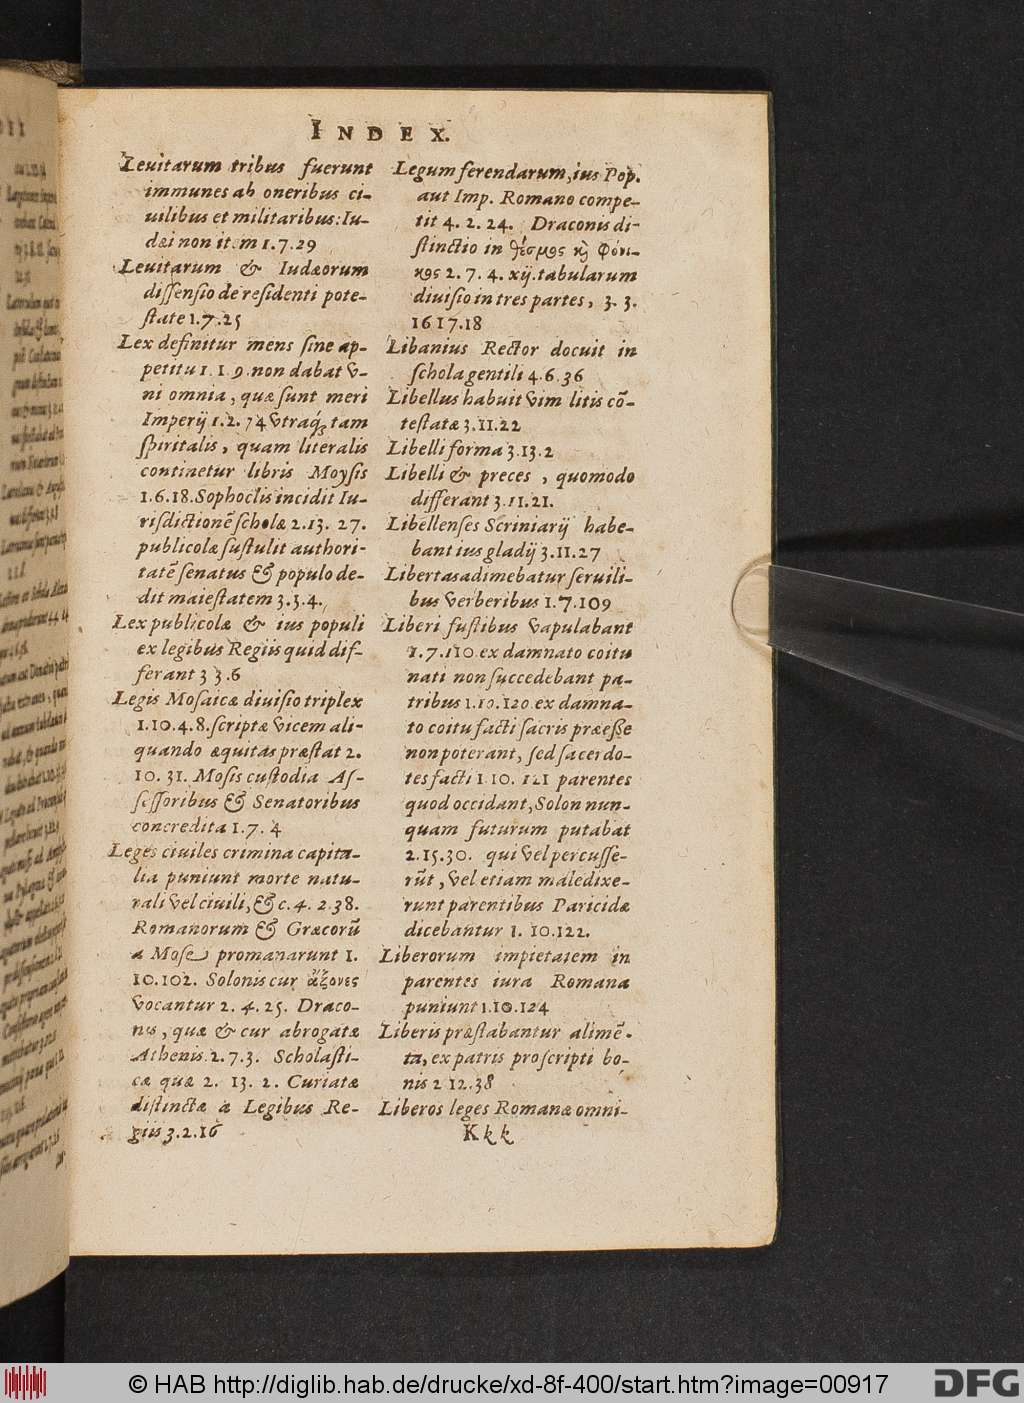 INDEX.
Leuitarum tribus fuerunt
immunes ab oneribus ci-
uilibus et militaribus: Iu-
dæi non item 1.7.29
Leuitarum & Iudæorum
dissensio de residenti pote-
state 1.7.25
Lex definitur mens sine ap-
petitu 1.1.9. non dabat v-
ni omnia, quæ sunt meri
Imperij 1.2.74 vtraq́; tam
spiritalis, quam literalis
continetur libris Moysis
1.6.18. Sophoclis incidit Iu-
risdictionē scholæ 2.13. 27.
publicolæ sustulit authori-
tatē senatus & populo de-
dit maiestatem 3.3.4.
Lex publicolæ & ius populi
ex legibus Regiis quid dif-
ferant 3 3.6
Legis Mosaicæ diuisio triplex
1.10.4.8. scriptæ vicem ali-
quando æquitas præstat 2.
10. 31. Mosis custodia As-
sessoribus & Senatoribus
concredita 1.7. 4
Leges ciuiles crimina capita-
lia puniunt morte natu-
rali vel ciuili, & c. 4. 2.38.
Romanorum & Græcorū
a Mose promanarunt 1.
10.102. Solonis cur ἄξονες
vocantur 2. 4. 25. Draco-
nis, quæ & cur abrogatæ
Athenis. 2.7.3. Scholasti-
cæ quæ 2. 13. 2. Curiatæ
distinctæ a Legibus Re-
giis 3.2.16
Legum ferendarum, ius Pop.
aut Imp. Romano compe-
tit 4. 2. 24. Draconis di-
stinctio in θέσμος κὶ Φόνι-
κος 2. 7. 4. xij. tabularum
diuisio in tres partes, 3. 3.
16 17.18
Libanius Rector docuit in
schola gentili 4.6.36
Libellus habuit vim litis cō-
testatæ 3.11.22
Libelli forma 3.13.2
Libelli & preces, quomodo
differant 3.11.21.
Libellenses Scriniarij habe-
bant ius gladij 3.11.27
Libertas adimebatur seruili-
bus verberibus 1.7.109
Liberi fustibus vapulabant
1.7.110 ex damnato coitu
nati non succedebant pa-
tribus 1.10.120 ex damna-
to coitu facti sacris præesse
non poterant, sed sacerdo-
tes facti 1.10. 121 parentes
quod occidant, Solon nun-
quam futurum putabat
2.15.30. qui vel percusse-
rūt, vel etiam maledixe-
runt parentibus Paricidæ
dicebantur 1. 10.122.
Liberorum impietatem in
parentes iura Romana
puniunt 1.10.124
Liberis præstabantur alimē-
ta, ex patris proscripti bo-
nis 2 12.38
Liberos leges Romanæ omni-
Kkk
© HAB http://diglib.hab.de/drucke/xd-8f-400/start.htm?image=00917
DFG